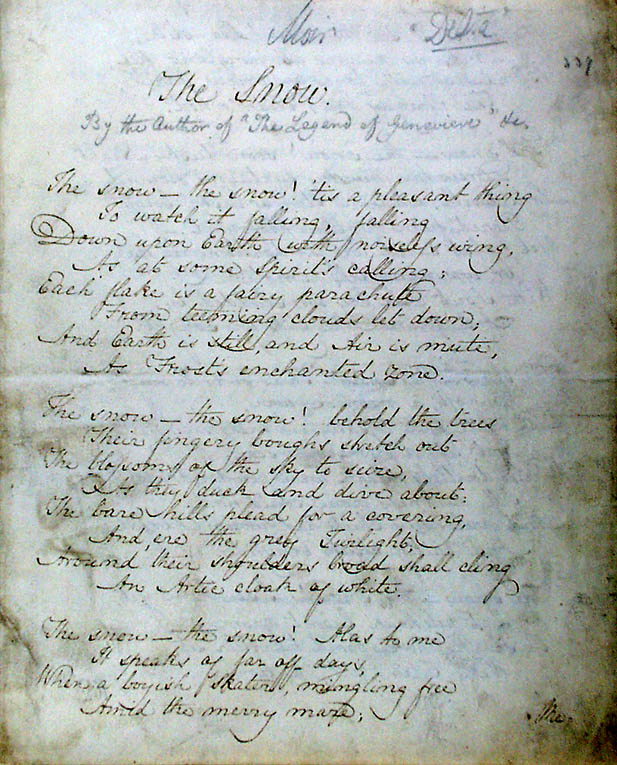 Moir "Delta"
339
The Snow.
By the Author of "The Legend of Genevieve" &c.
The snow – the snow! 'tis a pleasant thing
To watch it falling, falling
Down upon Earth with noiseless wing,
As at some spirit's calling;
Each flake is a fairy parachute
From teeming clouds let down;
And Earth is still, and Air is mute,
As Frost's enchanted zone.
The snow – the snow! behold the trees
Their fingery boughs stretch out
The blossoms of the sky to seize,
As they duck and dive about;
The bare hills plead for a covering,
And, ere the grey Twilight,
Around their shoulders broad shall cling
An Artic cloak of white.
The snow – the snow! Alas to me
It speaks of far off days,
When a boyish skater, mingling free
Amid the merry maze;
The